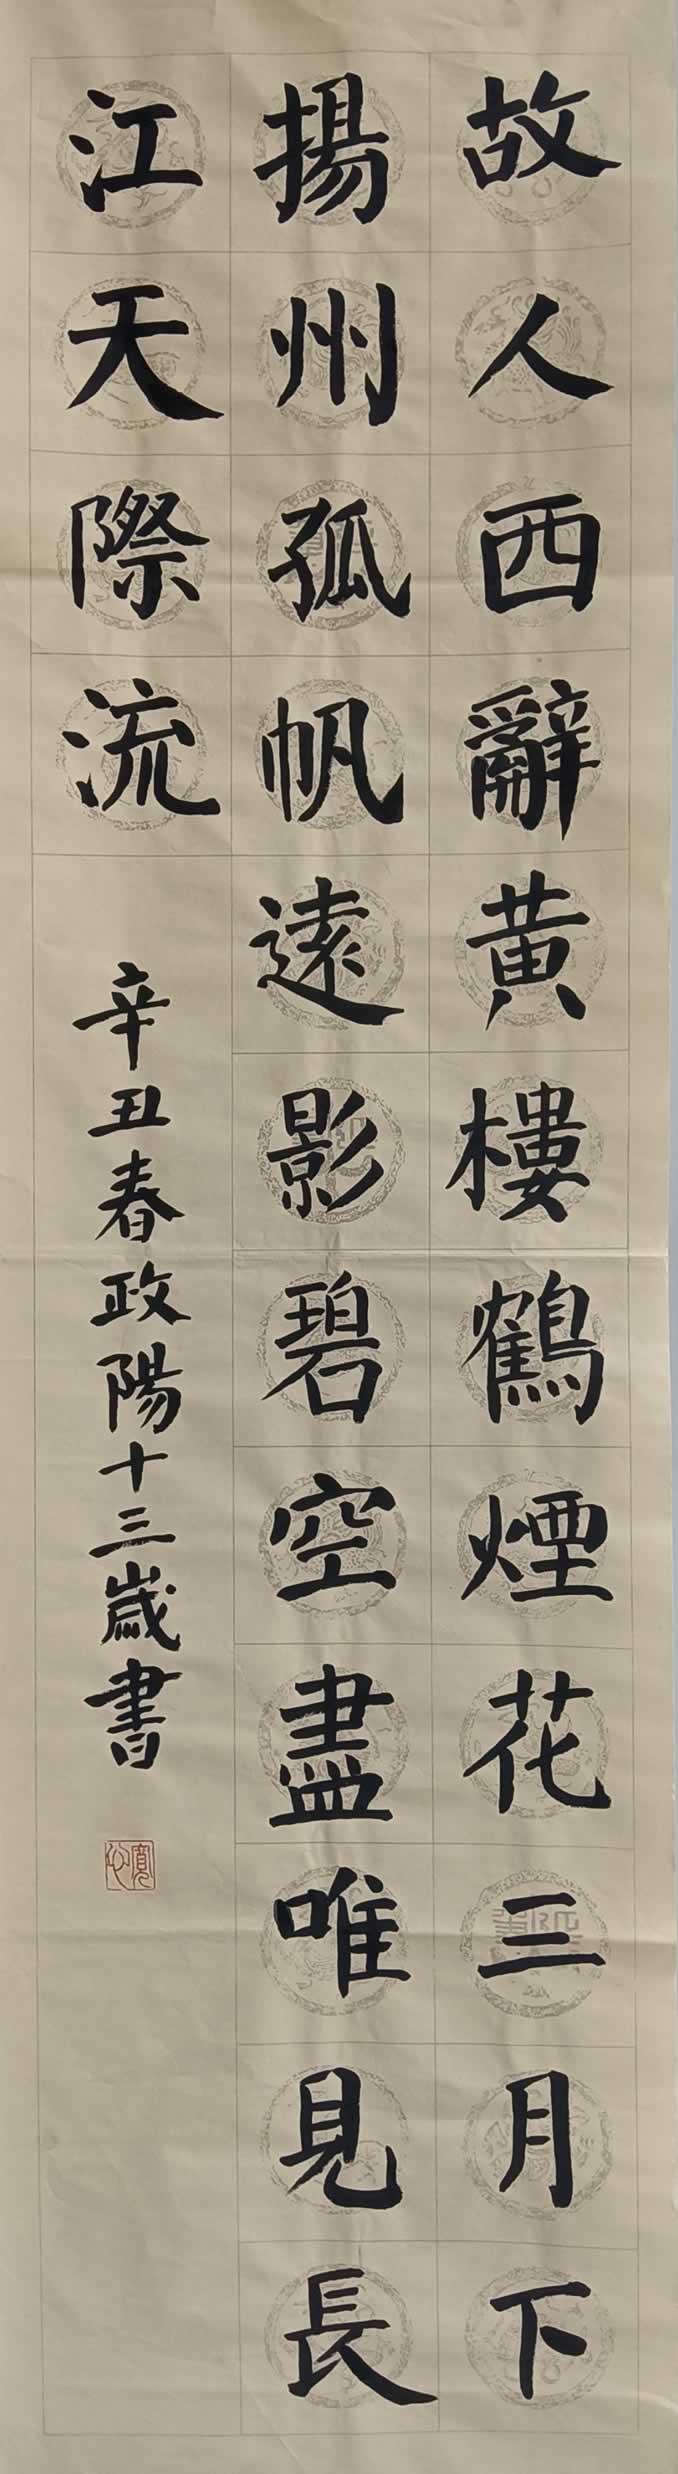 故人西辭黄樓鶴煙花三月下
揚州孤帆遠影碧空盡唯見長
江天際流
辛丑春政陽十三歲書